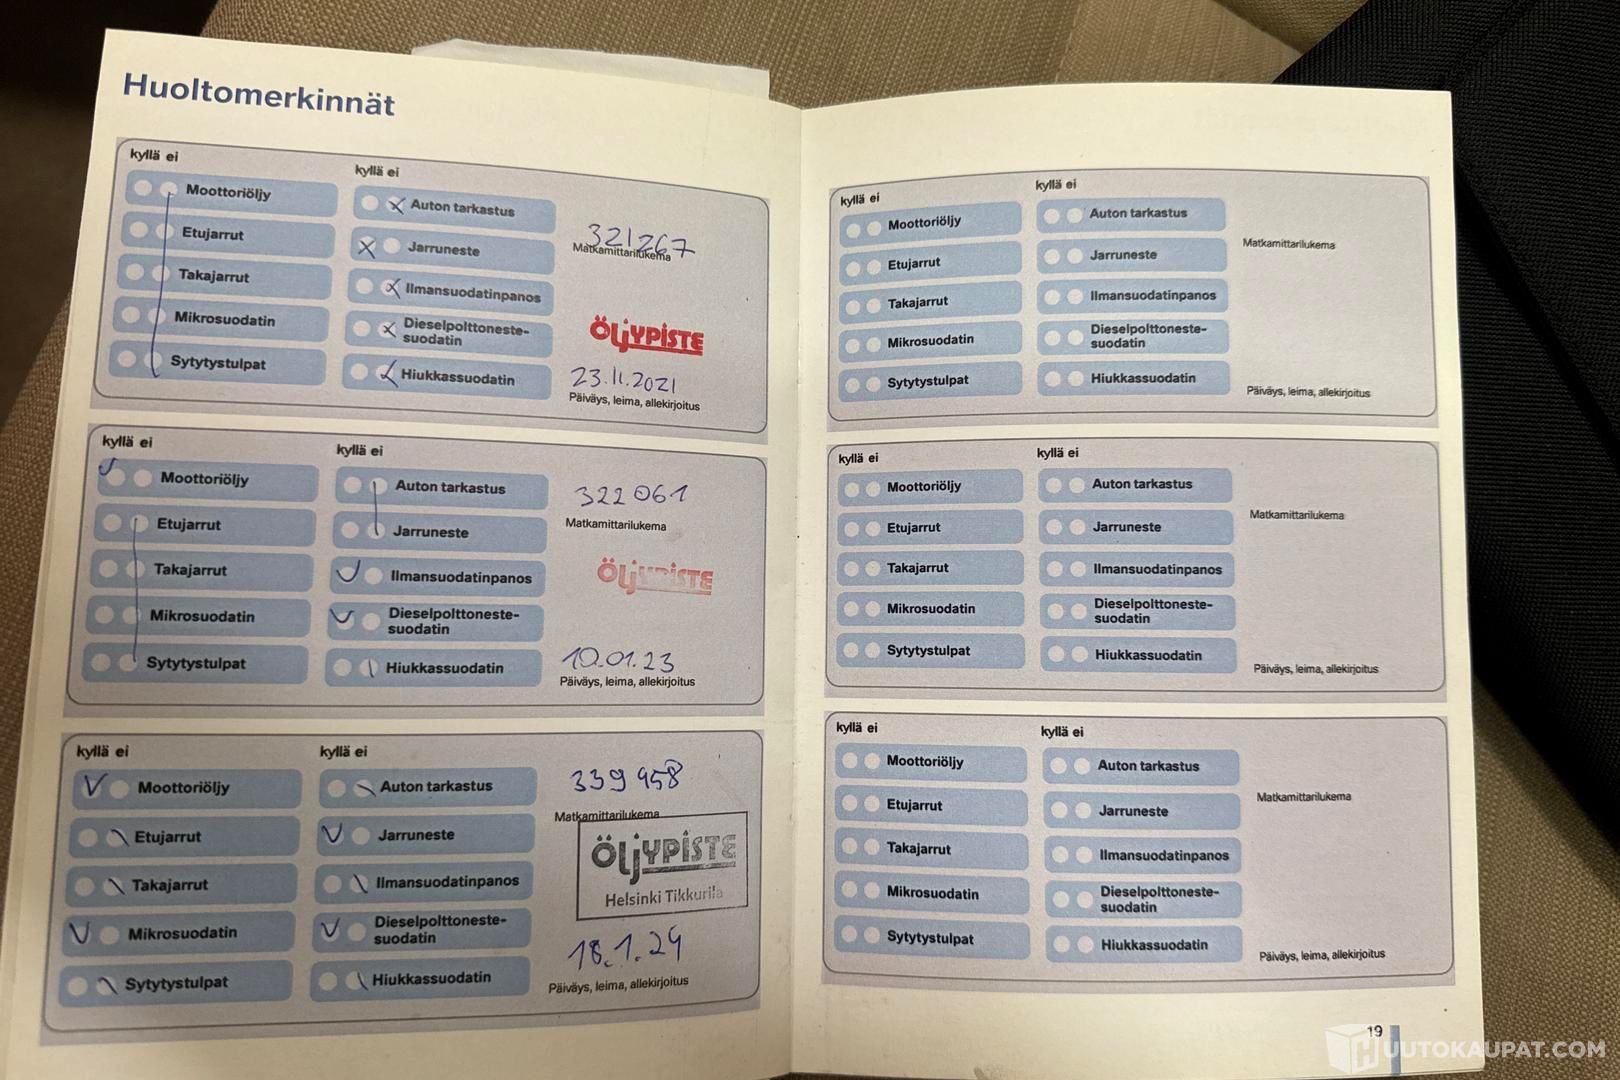 Huoltomerkinnät
kyllä ei
kyllä ei
Moottoriöljy
Etujarrut
Takajarrut
Mikrosuodatin
Sytytystulpat
Auton tarkastus
Jarruneste
Ilmansuodatinpanos
Dieselpolttoneste-
suodatin
Hiukkassuodatin
321267
Matkamittarilukema
ÖLJYPISTE
23.11.2021
Päiväys, leima, allekirjoitus
kyllä ei
kyllä ei
Moottoriöljy
Etujarrut
Takajarrut
Mikrosuodatin
Sytytystulpat
Auton tarkastus
Jarruneste
Ilmansuodatinpanos
Dieselpolttoneste-
suodatin
Hiukkassuodatin
322061
Matkamittarilukema
ÖLJYPISTE
10.01.23
Päiväys, leima, allekirjoitus
kyllä ei
kyllä ei
Moottoriöljy
Etujarrut
Takajarrut
Mikrosuodatin
Sytytystulpat
Auton tarkastus
Jarruneste
Ilmansuodatinpanos
Dieselpolttoneste-
suodatin
Hiukkassuodatin
339 458
Matkamittarilukema
ÖLJYPISTE
Helsinki Tikkurila
18.1.24
Päiväys, leima, allekirjoitus
kyllä ei
kyllä ei
Moottoriöljy
Etujarrut
Takajarrut
Mikrosuodatin
Sytytystulpat
Auton tarkastus
Jarruneste
Ilmansuodatinpanos
Dieselpolttoneste-
suodatin
Hiukkassuodatin
Matkamittarilukema
Päiväys, leima, allekirjoitus
kyllä ei
kyllä ei
Moottoriöljy
Etujarrut
Takajarrut
Mikrosuodatin
Sytytystulpat
Auton tarkastus
Jarruneste
Ilmansuodatinpanos
Dieselpolttoneste-
suodatin
Hiukkassuodatin
Matkamittarilukema
Päiväys, leima, allekirjoitus
kyllä ei
kyllä ei
Moottoriöljy
Etujarrut
Takajarrut
Mikrosuodatin
Sytytystulpat
Auton tarkastus
Jarruneste
Ilmansuodatinpanos
Dieselpolttoneste-
suodatin
Hiukkassuodatin
Matkamittarilukema
Päiväys, leima, allekirjoitus
19
HUUTOKAUPAT.COM